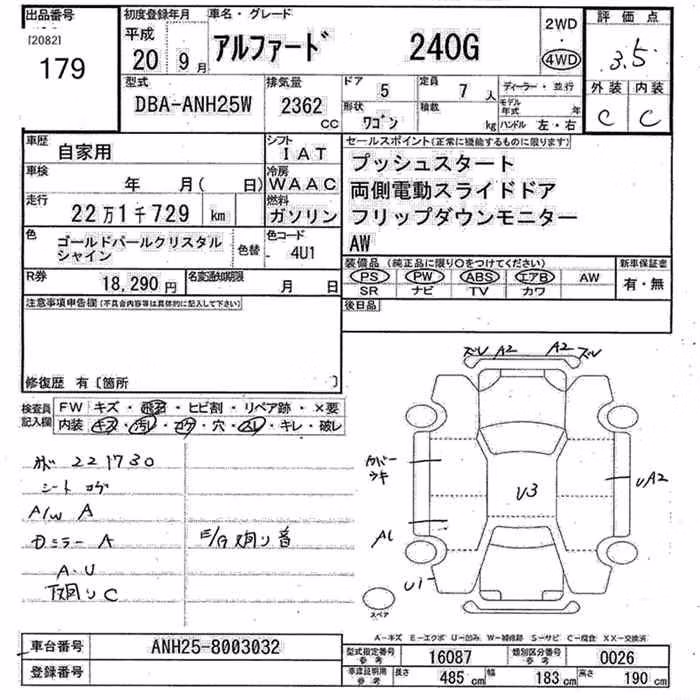 出品番号
[2082]
179
初度登録年月
平成
20 9月
車名・グレード
アルファード 240G
2WD
4WD
評価点
3.5
外装 内装
C C
型式
DBA-ANH25W
排気量
2362 CC
ドア
5
定員
7 人
形状
ワゴン
積載
kg
ディーラー・並行
モデル年式 年
ハンドル 左・右
車歴
自家用
シフト
IAT
車検
年 月( 日)
冷房
WAAC
走行
22万1千729 km
燃料
ガソリン
色
ゴールドパールクリスタル
シャイン
色替
色コード
- 4U1
R券
18,290 円
名変通知期限
月 日
セールスポイント(正常に機能するものに限ります)
プッシュスタート
両側電動スライドドア
フリップダウンモニター
AW
装備品(純正品に限り○をつけてください)
PS PW ABS エアB AW
SR ナビ TV カワ
新車保証書
有・無
後日品
注意事項申告欄(不具合内容等は具体的に記入して下さい)
修復歴 有〔箇所 〕
検査員
記入欄
FW キズ・飛石・ヒビ割・リペア跡・×要
内装 キズ・汚レ・コゲ・穴・スレ・キレ・破レ
221730
シート コゲ
A/W A
Dミラー A
A.U
下廻りC
E/G廻り音
ズレ A2 A2 ズレ
カバー
ウキ
U3
UA2
A1
U1
スペア
A-キズ E-エクボ U-凹み W-補修跡 S-サビ C-腐食 XX-交換済
車台番号
ANH25-8003032
登録番号
型式指定番号
参考
16087
類別区分番号
参考
0026
車庫証明用
参考
長さ 485 cm 幅 183 cm 高さ 190 cm